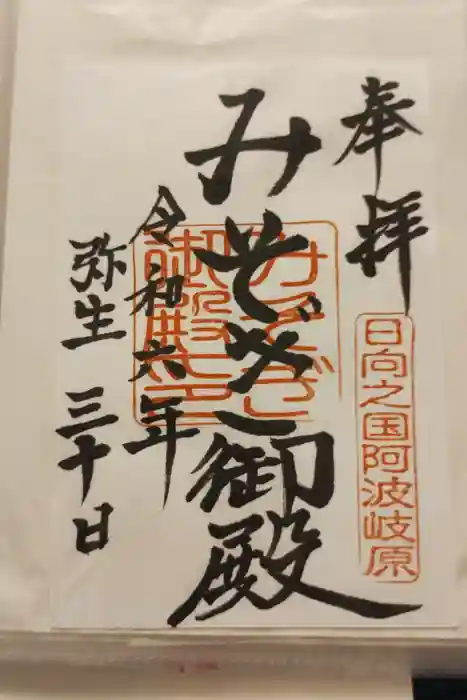 奉拝
日向之国阿波岐原
みそぎ御殿
みそぎ
御殿之印
令和六年
弥生三十日